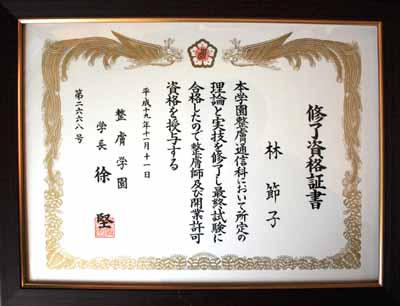 修了資格証書
林節子
本学園整膚通信科において所定の
理論と実技を修了し最終試験に
合格したので整膚師及び開業許可
資格を授与する
平成十九年十一月十一日
整膚学園
学長 徐堅
第二六六八号